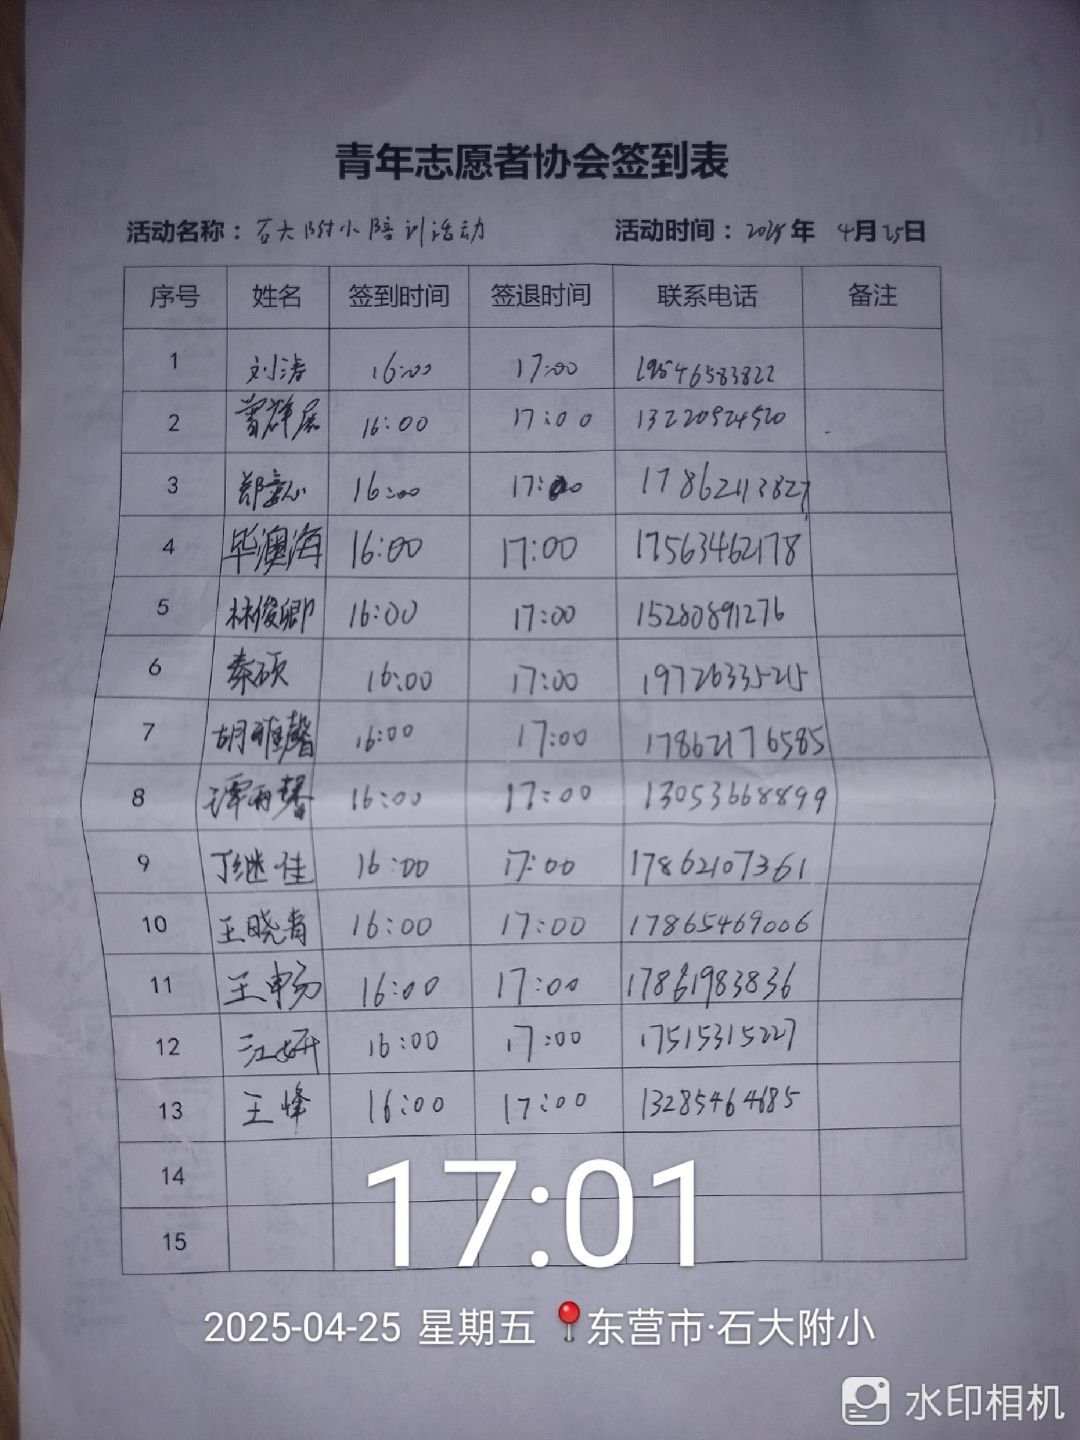 青年志愿者协会签到表
活动名称：石大附小陪训活动 活动时间：2025年 4月25日
序号 姓名 签到时间 签退时间 联系电话 备注
1 刘涛 16:00 17:00 19546583822
2 曾群展 16:00 17:00 13220924520
3 郑 16:00 17:00 17862113827
4 毕澳海 16:00 17:00 17563462178
5 林俊卿 16:00 17:00 15280891276
6 秦硕 16:00 17:00 19726335215
7 胡雅馨 16:00 17:00 17862176585
8 谭雨馨 16:00 17:00 13053668899
9 丁继佳 16:00 17:00 17862107361
10 王晓青 16:00 17:00 17865469006
11 王畅 16:00 17:00 17861983836
12 江妍 16:00 17:00 17515315227
13 王峰 16:00 17:00 13285464685
14
15
17:01
2025-04-25 星期五 东营市·石大附小
水印相机